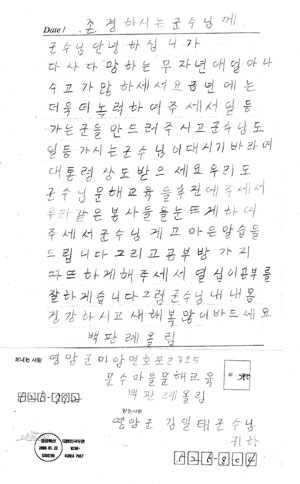 Date / . 존경하시는군수님께
군수님안녕하십니.가
다사다망하는무자년애일아나
수고가만하세서요금년에는
더욱더노력하여주세서일등
가는군을만드러주시고군수님도
일등가시는군수님이대시기바라며
대통령상도받으세요우리도
군수님문해교육을추전에주세서
우라같은봉사들을눈뜨게하여
주세서군수님게고마은맘습을
드립니다그리고공부방가지
따뜨하게해주세서열심이공부를
잘하게습니다그럼군수님내내몸
건강하시고새해복많이바드세요
백판례올림
보내는사람 영암군미암면호포2325
문수마을문해교육
백판례올림
받는사람
영암군 김일태군수님
귀하
영암학산
2009.01.22
대한민국우편
KOREA POST